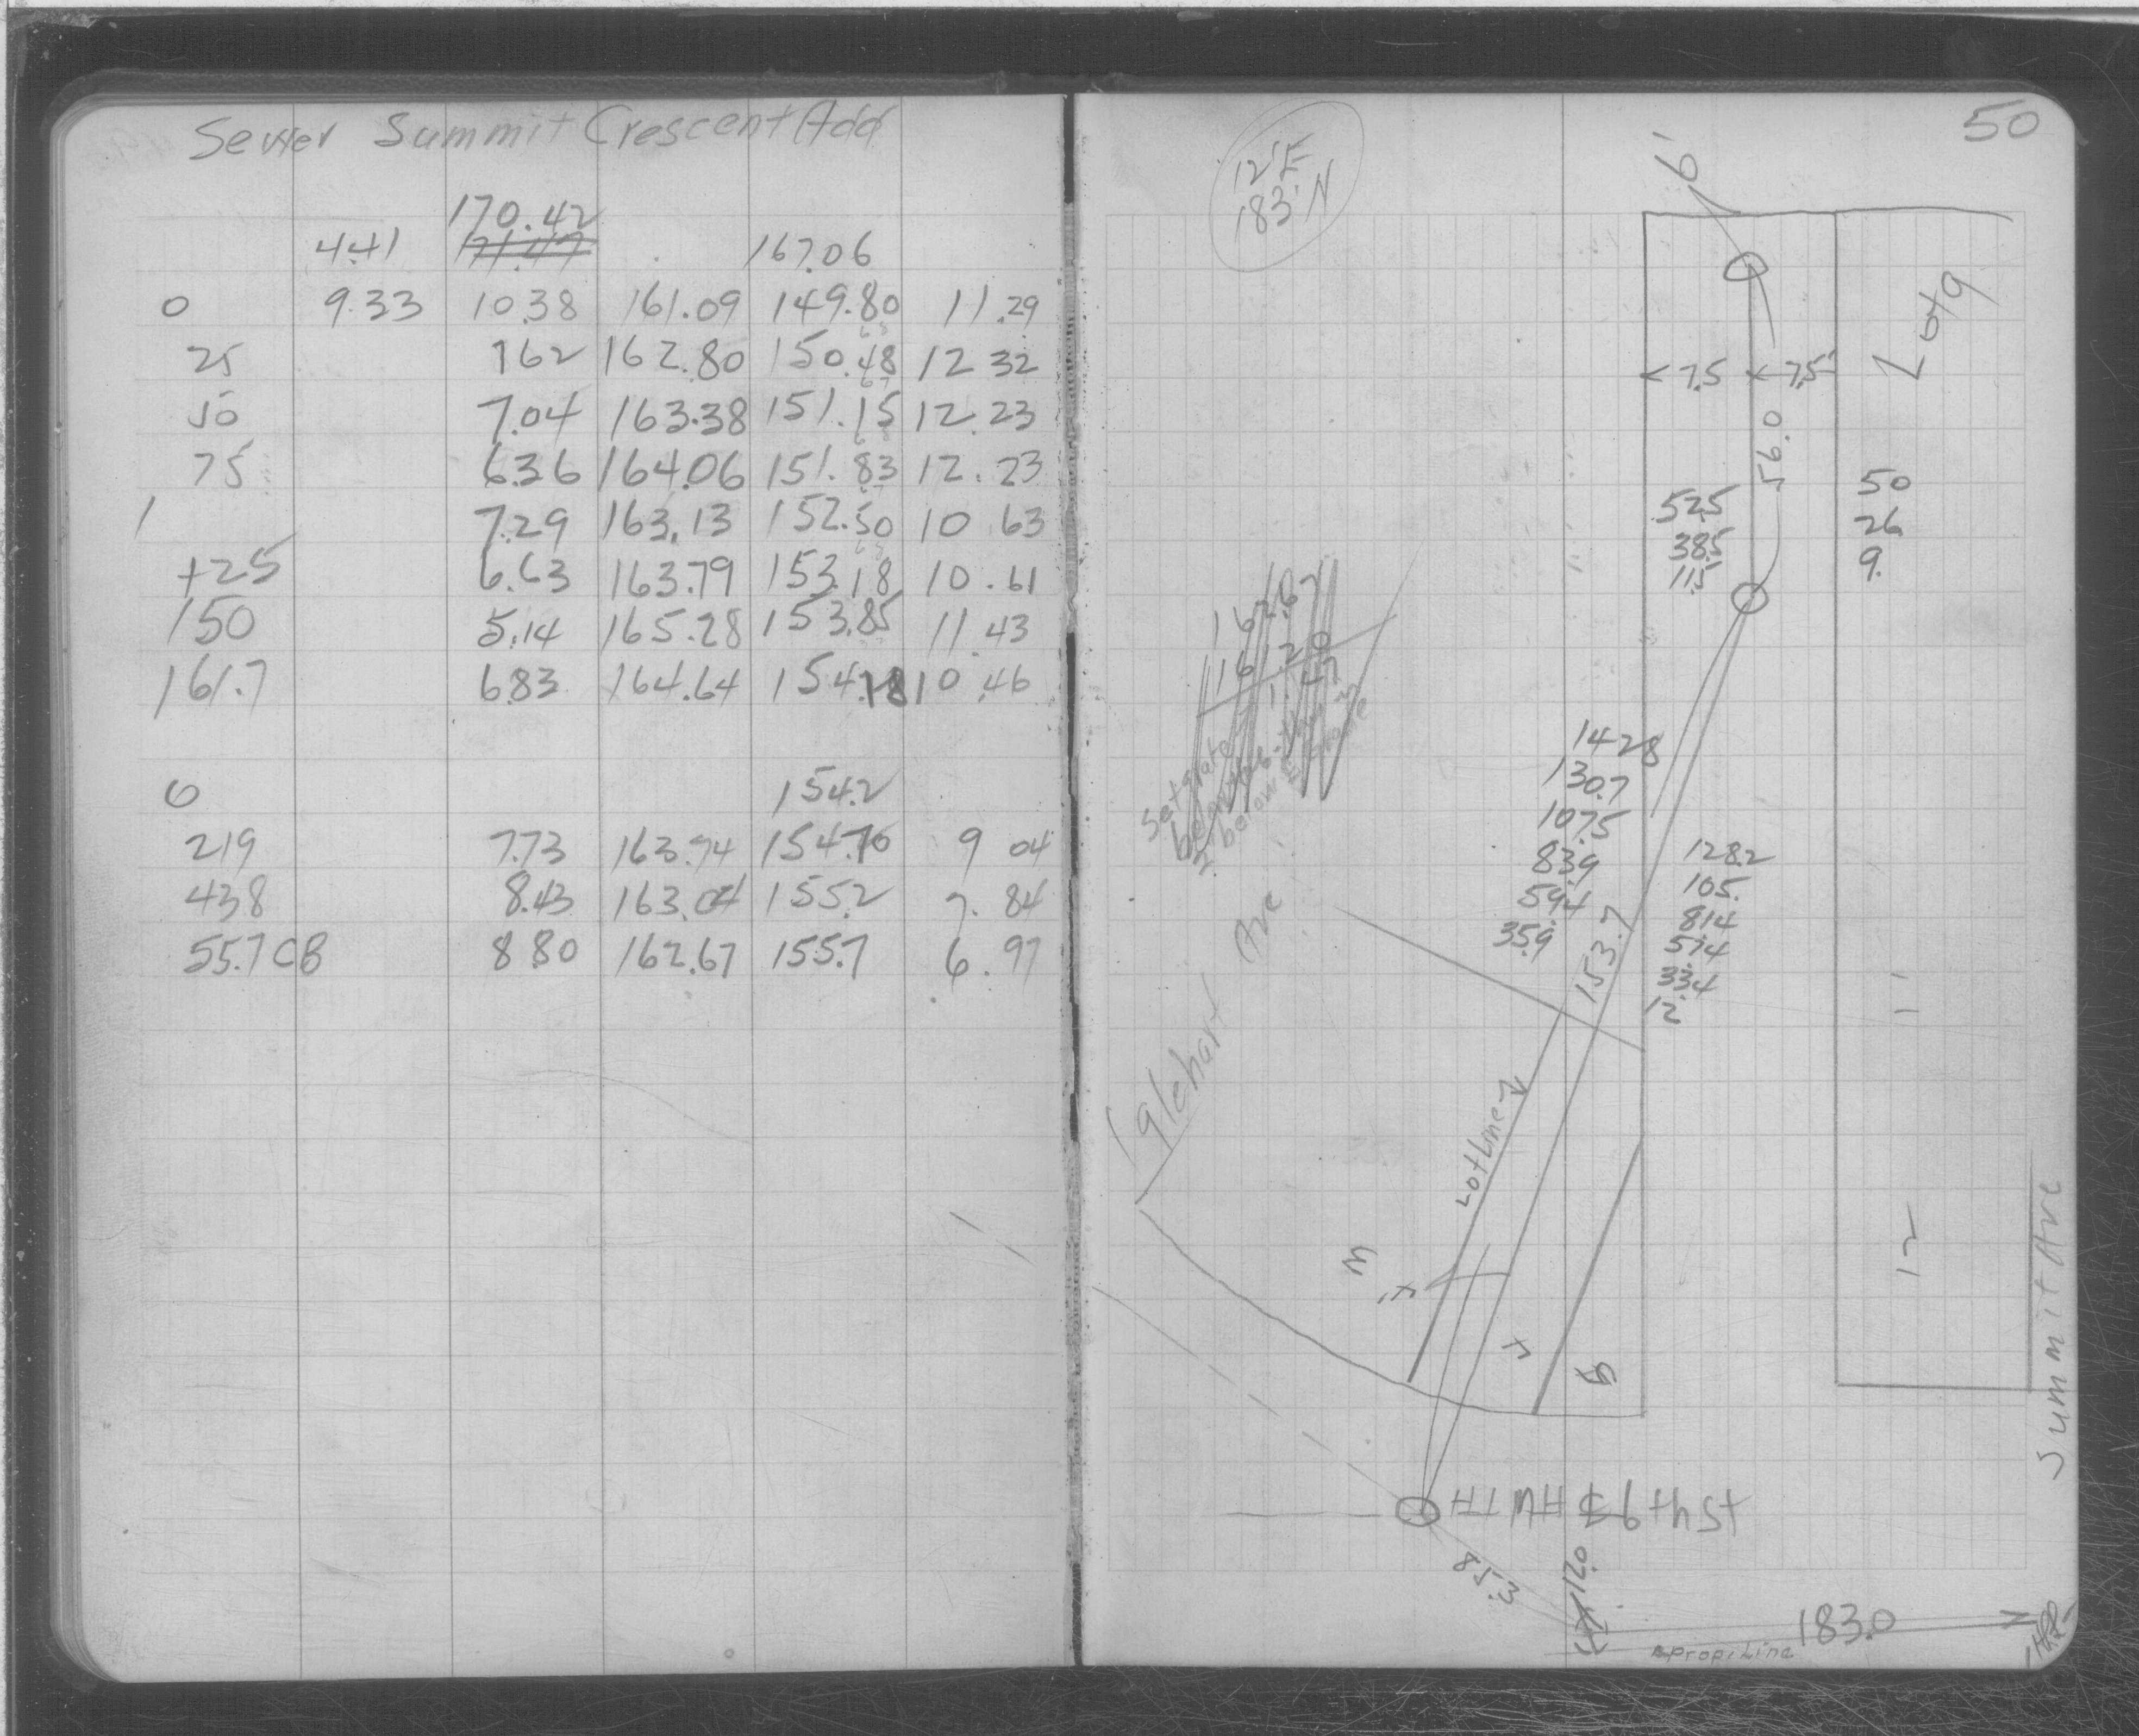 Sewer Summit Crescent Add
170.42
4.41 167.06
0 9.33 10.38 161.09 149.80 11.29
25 762 162.80 150.48 12 32
50 7.04 163.38 151.15 12.23
75 6.36 164.06 151.83 12.23
1 7.29 163.13 152.50 10 63
+25 6.63 163.79 153.18 10.61
150 5.14 165.28 153.85 11 43
161.7 6.83 164.64 154.18 10.46
0 154.2
219 7.73 163.94 154.70 9 04
438 8.43 163.04 155.2 7.84
55.7 CB 8.80 162.67 155.7 6.97
50
12'E
183'N
6'
Lot 9
7.5 7.5'
56.0
52.5
38.5
11.5
50
26
9.
162.67
161.20
1.47
142.8
130.7
107.5
83.9
59.4
35.9
153.7
128.2
105.
81.4
57.4
33.4
12
11
12
Iglehart Ave
Lot Line
3
4
5
Summit Ave
6th St
35.8
12.0
183.0
Prop. Line